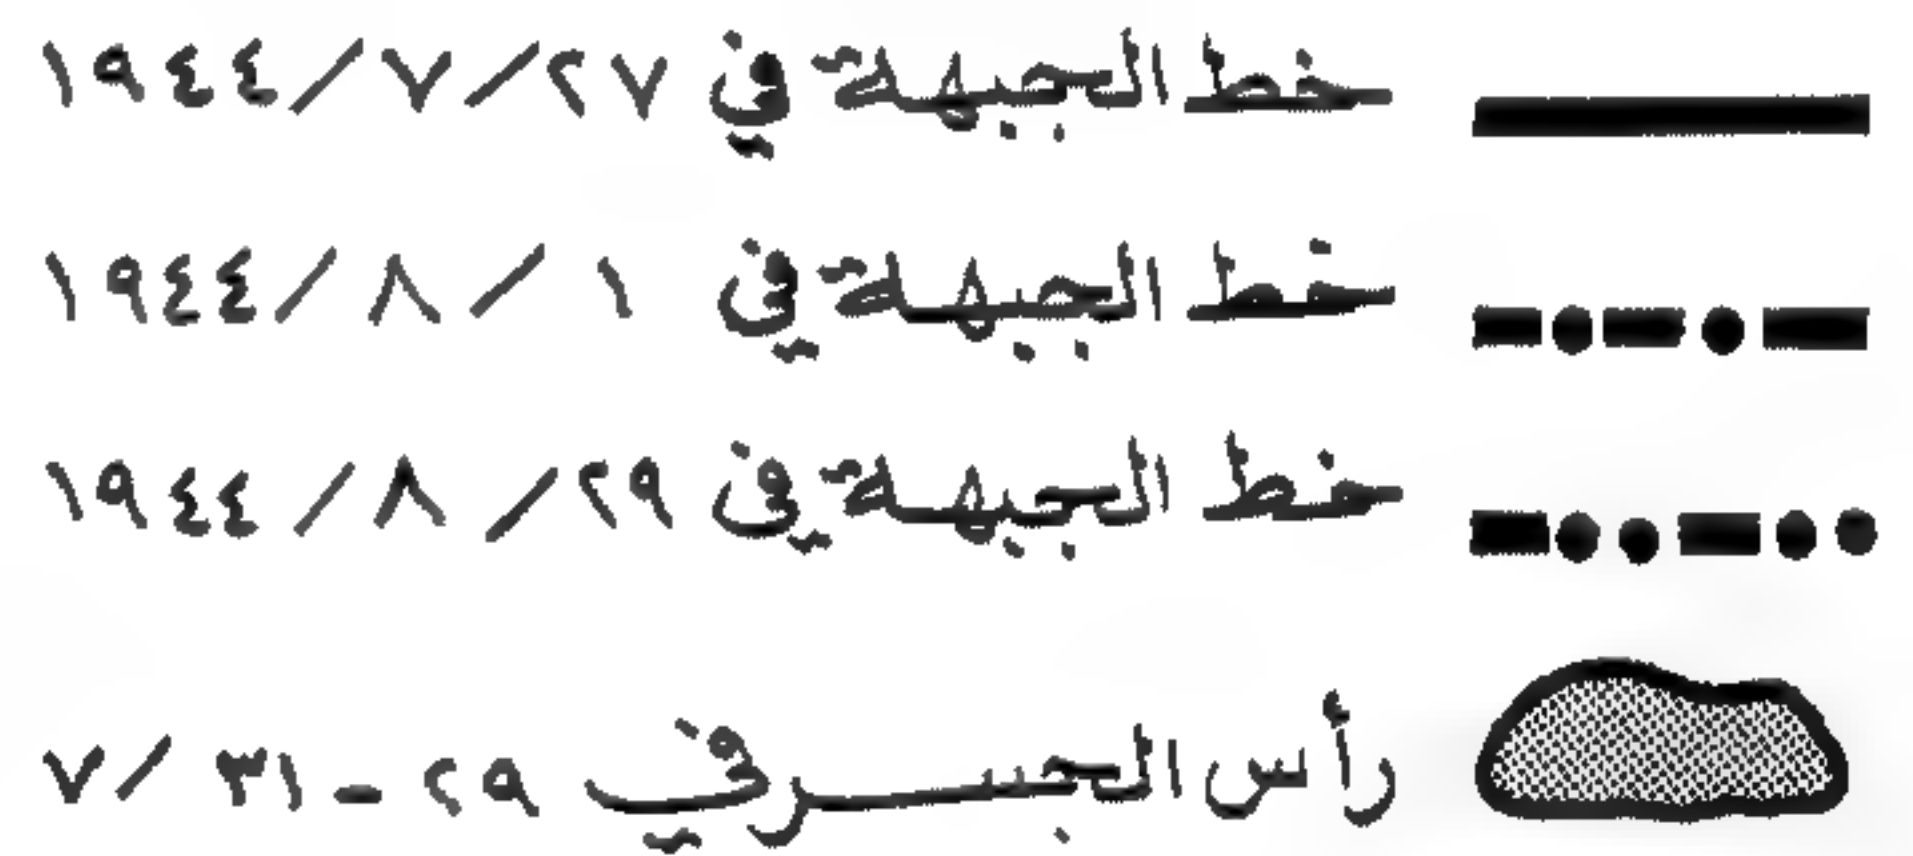 خط الجبهة في ٢٧/٧/١٩٤٤
خط الجبهة في ١/٨/١٩٤٤
خط الجبهة في ٢٩/٨/١٩٤٤
رأس الجسر في ٢٩ - ٣١/٧